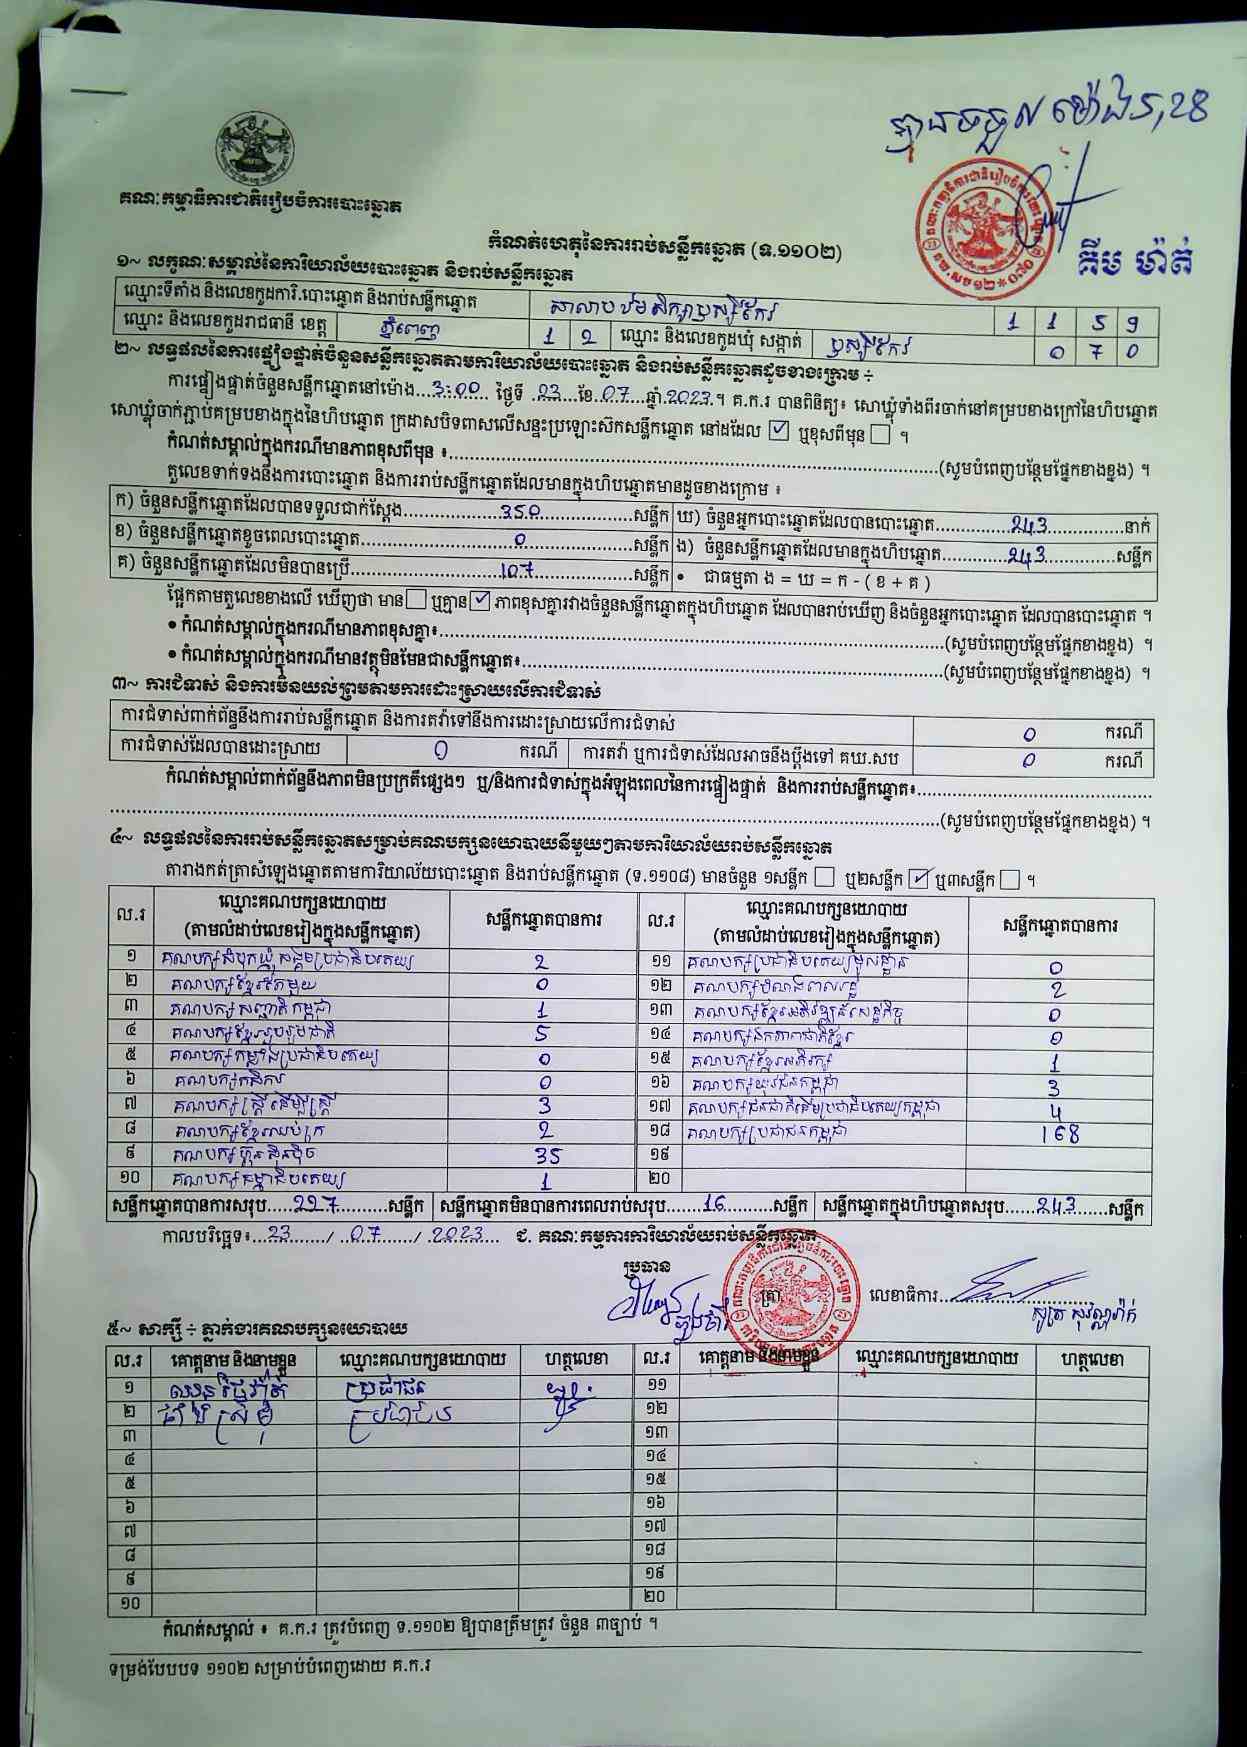 ម៉ោង ៩,28
គីម ម៉ាត់
គណៈកម្មាធិការជាតិរៀបចំការបោះឆ្នោត
កំណត់ហេតុនៃការរាប់សន្លឹកឆ្នោត (ទ.១១០២)
១~ លក្ខណៈសម្គាល់នៃការិយាល័យបោះឆ្នោត និងរាប់សន្លឹកឆ្នោត
ឈ្មោះទីតាំង និងលេខកូដការិ.បោះឆ្នោត និងរាប់សន្លឹកឆ្នោត សាលាបឋមសិក្សាឫស្សីកែវ 1 1 5 9
ឈ្មោះ និងលេខកូដរាជធានី ខេត្ត ភ្នំពេញ 1 2 ឈ្មោះ និងលេខកូដឃុំ សង្កាត់ ឫស្សីកែវ 0 7 0
២~ លទ្ធផលនៃការផ្ទៀងផ្ទាត់ចំនួនសន្លឹកឆ្នោតតាមការិយាល័យបោះឆ្នោត និងរាប់សន្លឹកឆ្នោតដូចខាងក្រោម ÷
ការផ្ទៀងផ្ទាត់ចំនួនសន្លឹកឆ្នោតនៅម៉ោង...3:00... ថ្ងៃទី...23...ខែ...07...ឆ្នាំ.2023.។ គ.ក.រ បានពិនិត្យ៖ សោឃ្លុំទាំងពីរចាក់នៅគម្របខាងក្រៅនៃហិបឆ្នោត
សោឃ្លុំចាក់ភ្ជាប់គម្របខាងក្នុងនៃហិបឆ្នោត ក្រដាសបិទពាសលើសន្ទះប្រឡោះស៊កសន្លឹកឆ្នោត នៅដដែល ☑ ឬខុសពីមុន ☐ ។
កំណត់សម្គាល់ក្នុងករណីមានភាពខុសពីមុន ៖...(សូមបំពេញបន្ថែមផ្នែកខាងខ្នង) ។
តួលេខទាក់ទងនឹងការបោះឆ្នោត និងការរាប់សន្លឹកឆ្នោតដែលមានក្នុងហិបឆ្នោតមានដូចខាងក្រោម ៖
ក) ចំនួនសន្លឹកឆ្នោតដែលបានទទួលជាក់ស្តែង...350...សន្លឹក ឃ) ចំនួនអ្នកបោះឆ្នោតដែលបានបោះឆ្នោត...243...នាក់
ខ) ចំនួនសន្លឹកឆ្នោតខូចពេលបោះឆ្នោត...0...សន្លឹក ង) ចំនួនសន្លឹកឆ្នោតដែលមានក្នុងហិបឆ្នោត...243...សន្លឹក
គ) ចំនួនសន្លឹកឆ្នោតដែលមិនបានប្រើ...107...សន្លឹក • ជាធម្មតា ង = ឃ = ក - ( ខ + គ )
ផ្អែកតាមតួលេខខាងលើ ឃើញថា មាន ☐ ឬគ្មាន ☑ ភាពខុសគ្នារវាងចំនួនសន្លឹកឆ្នោតក្នុងហិបឆ្នោត ដែលបានរាប់ឃើញ និងចំនួនអ្នកបោះឆ្នោត ដែលបានបោះឆ្នោត ។
• កំណត់សម្គាល់ក្នុងករណីមានភាពខុសគ្នា៖...(សូមបំពេញបន្ថែមផ្នែកខាងខ្នង) ។
• កំណត់សម្គាល់ក្នុងករណីមានវត្ថុមិនមែនជាសន្លឹកឆ្នោត៖...(សូមបំពេញបន្ថែមផ្នែកខាងខ្នង) ។
៣~ ការជំទាស់ និងការមិនយល់ព្រមតាមការដោះស្រាយលើការជំទាស់
ការជំទាស់ពាក់ព័ន្ធនឹងការរាប់សន្លឹកឆ្នោត និងការតវ៉ាទៅនឹងការដោះស្រាយលើការជំទាស់ 0 ករណី
ការជំទាស់ដែលបានដោះស្រាយ 0 ករណី ការតវ៉ា ឬការជំទាស់ដែលអាចនឹងប្តឹងទៅ គឃ.សប 0 ករណី
កំណត់សម្គាល់ពាក់ព័ន្ធនឹងភាពមិនប្រក្រតីផ្សេងៗ ឬ/និងការជំទាស់ក្នុងអំឡុងពេលនៃការផ្ទៀងផ្ទាត់ និងការរាប់សន្លឹកឆ្នោត៖...
...(សូមបំពេញបន្ថែមផ្នែកខាងខ្នង) ។
៤~ លទ្ធផលនៃការរាប់សន្លឹកឆ្នោតសម្រាប់គណបក្សនយោបាយនីមួយៗតាមការិយាល័យរាប់សន្លឹកឆ្នោត
តារាងកត់ត្រាសំឡេងឆ្នោតតាមការិយាល័យបោះឆ្នោត និងរាប់សន្លឹកឆ្នោត (ទ.១១០៨) មានចំនួន ១សន្លឹក ☐ ឬ២សន្លឹក ☑ ឬ៣សន្លឹក ☐ ។
ល.រ ឈ្មោះគណបក្សនយោបាយ (តាមលំដាប់លេខរៀងក្នុងសន្លឹកឆ្នោត) សន្លឹកឆ្នោតបានការ ល.រ ឈ្មោះគណបក្សនយោបាយ (តាមលំដាប់លេខរៀងក្នុងសន្លឹកឆ្នោត) សន្លឹកឆ្នោតបានការ
១ គណបក្សសំបុកឃ្មុំសង្គមប្រជាធិបតេយ្យ 2 ១១ គណបក្សប្រជាធិបតេយ្យមូលដ្ឋាន 0
២ គណបក្សខ្មែរតែមួយ 0 ១២ គណបក្សបំណងពលរដ្ឋ 2
៣ គណបក្សសញ្ជាតិកម្ពុជា 1 ១៣ គណបក្សខ្មែរអភិវឌ្ឍន៍សេដ្ឋកិច្ច 0
៤ គណបក្សខ្មែររួបរួមជាតិ 5 ១៤ គណបក្សឯកភាពជាតិខ្មែរ 0
៥ គណបក្សកម្លាំងប្រជាធិបតេយ្យ 0 ១៥ គណបក្សខ្មែរអភិរក្ស 1
៦ គណបក្សកសិករ 0 ១៦ គណបក្សយុវជនកម្ពុជា 3
៧ គណបក្សស្ត្រីដើម្បីស្ត្រី 3 ១៧ គណបក្សជនជាតិដើមប្រជាធិបតេយ្យកម្ពុជា 4
៨ គណបក្សខ្មែរឈប់ក្រ 2 ១៨ គណបក្សប្រជាជនកម្ពុជា 168
៩ គណបក្សហ៊្វុនស៊ិនប៉ិច 35 ១៩
១០ គណបក្សធម្មាធិបតេយ្យ 1 ២០
សន្លឹកឆ្នោតបានការសរុប...227...សន្លឹក សន្លឹកឆ្នោតមិនបានការពេលរាប់សរុប...16...សន្លឹក សន្លឹកឆ្នោតក្នុងហិបឆ្នោតសរុប...243...សន្លឹក
កាលបរិច្ឆេទ៖...23.../...07.../...2023... ជ. គណៈកម្មការការិយាល័យរាប់សន្លឹកឆ្នោត
ប្រធាន ត្រា លេខាធិការ...
៥~ សាក្សី ÷ ភ្នាក់ងារគណបក្សនយោបាយ
ល.រ គោត្តនាម និងនាមខ្លួន ឈ្មោះគណបក្សនយោបាយ ហត្ថលេខា ល.រ គោត្តនាម និងនាមខ្លួន ឈ្មោះគណបក្សនយោបាយ ហត្ថលេខា
១ ប្រជាជន ១១
២ ១២
៣ ១៣
៤ ១៤
៥ ១៥
៦ ១៦
៧ ១៧
៨ ១៨
៩ ១៩
១០ ២០
កំណត់សម្គាល់ ៖ គ.ក.រ ត្រូវបំពេញ ទ.១១០២ ឱ្យបានត្រឹមត្រូវ ចំនួន ៣ច្បាប់ ។
ទម្រង់បែបបទ ១១០២ សម្រាប់បំពេញដោយ គ.ក.រ